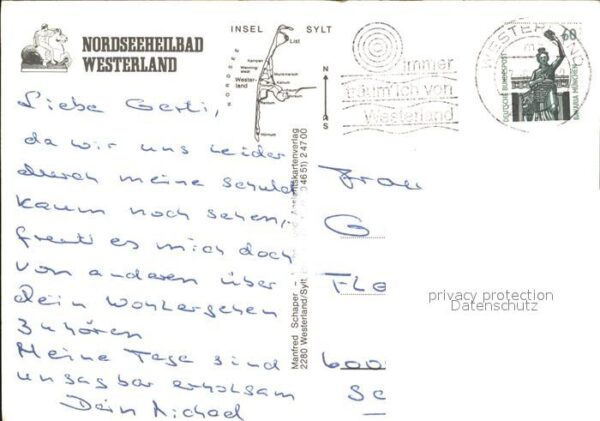 NORDSEEHEILBAD
WESTERLAND
INSEL SYLT
NORDSEE
List
Kampen
Westerland
Keitum
N
S
immer
träum' ich von
Westerland
WESTERLAND
60
DEUTSCHE BUNDESPOST
BAVARIA MÜNCHEN
Liebe Gerti,
da wir uns leider
durch meine Schuld
kaum noch sehen,
freut es mich doch
von anderen über
dein Wohlergehen
zu hören
Meine Tage sind
unsagbar erholsam
Dein Michael
Manfred Schaper - Ansichtskartenverlag
2280 Westerland/Sylt (0 46 51) 2 47 00
Frau
G
Fle
600
Sc
privacy protection
Datenschutz